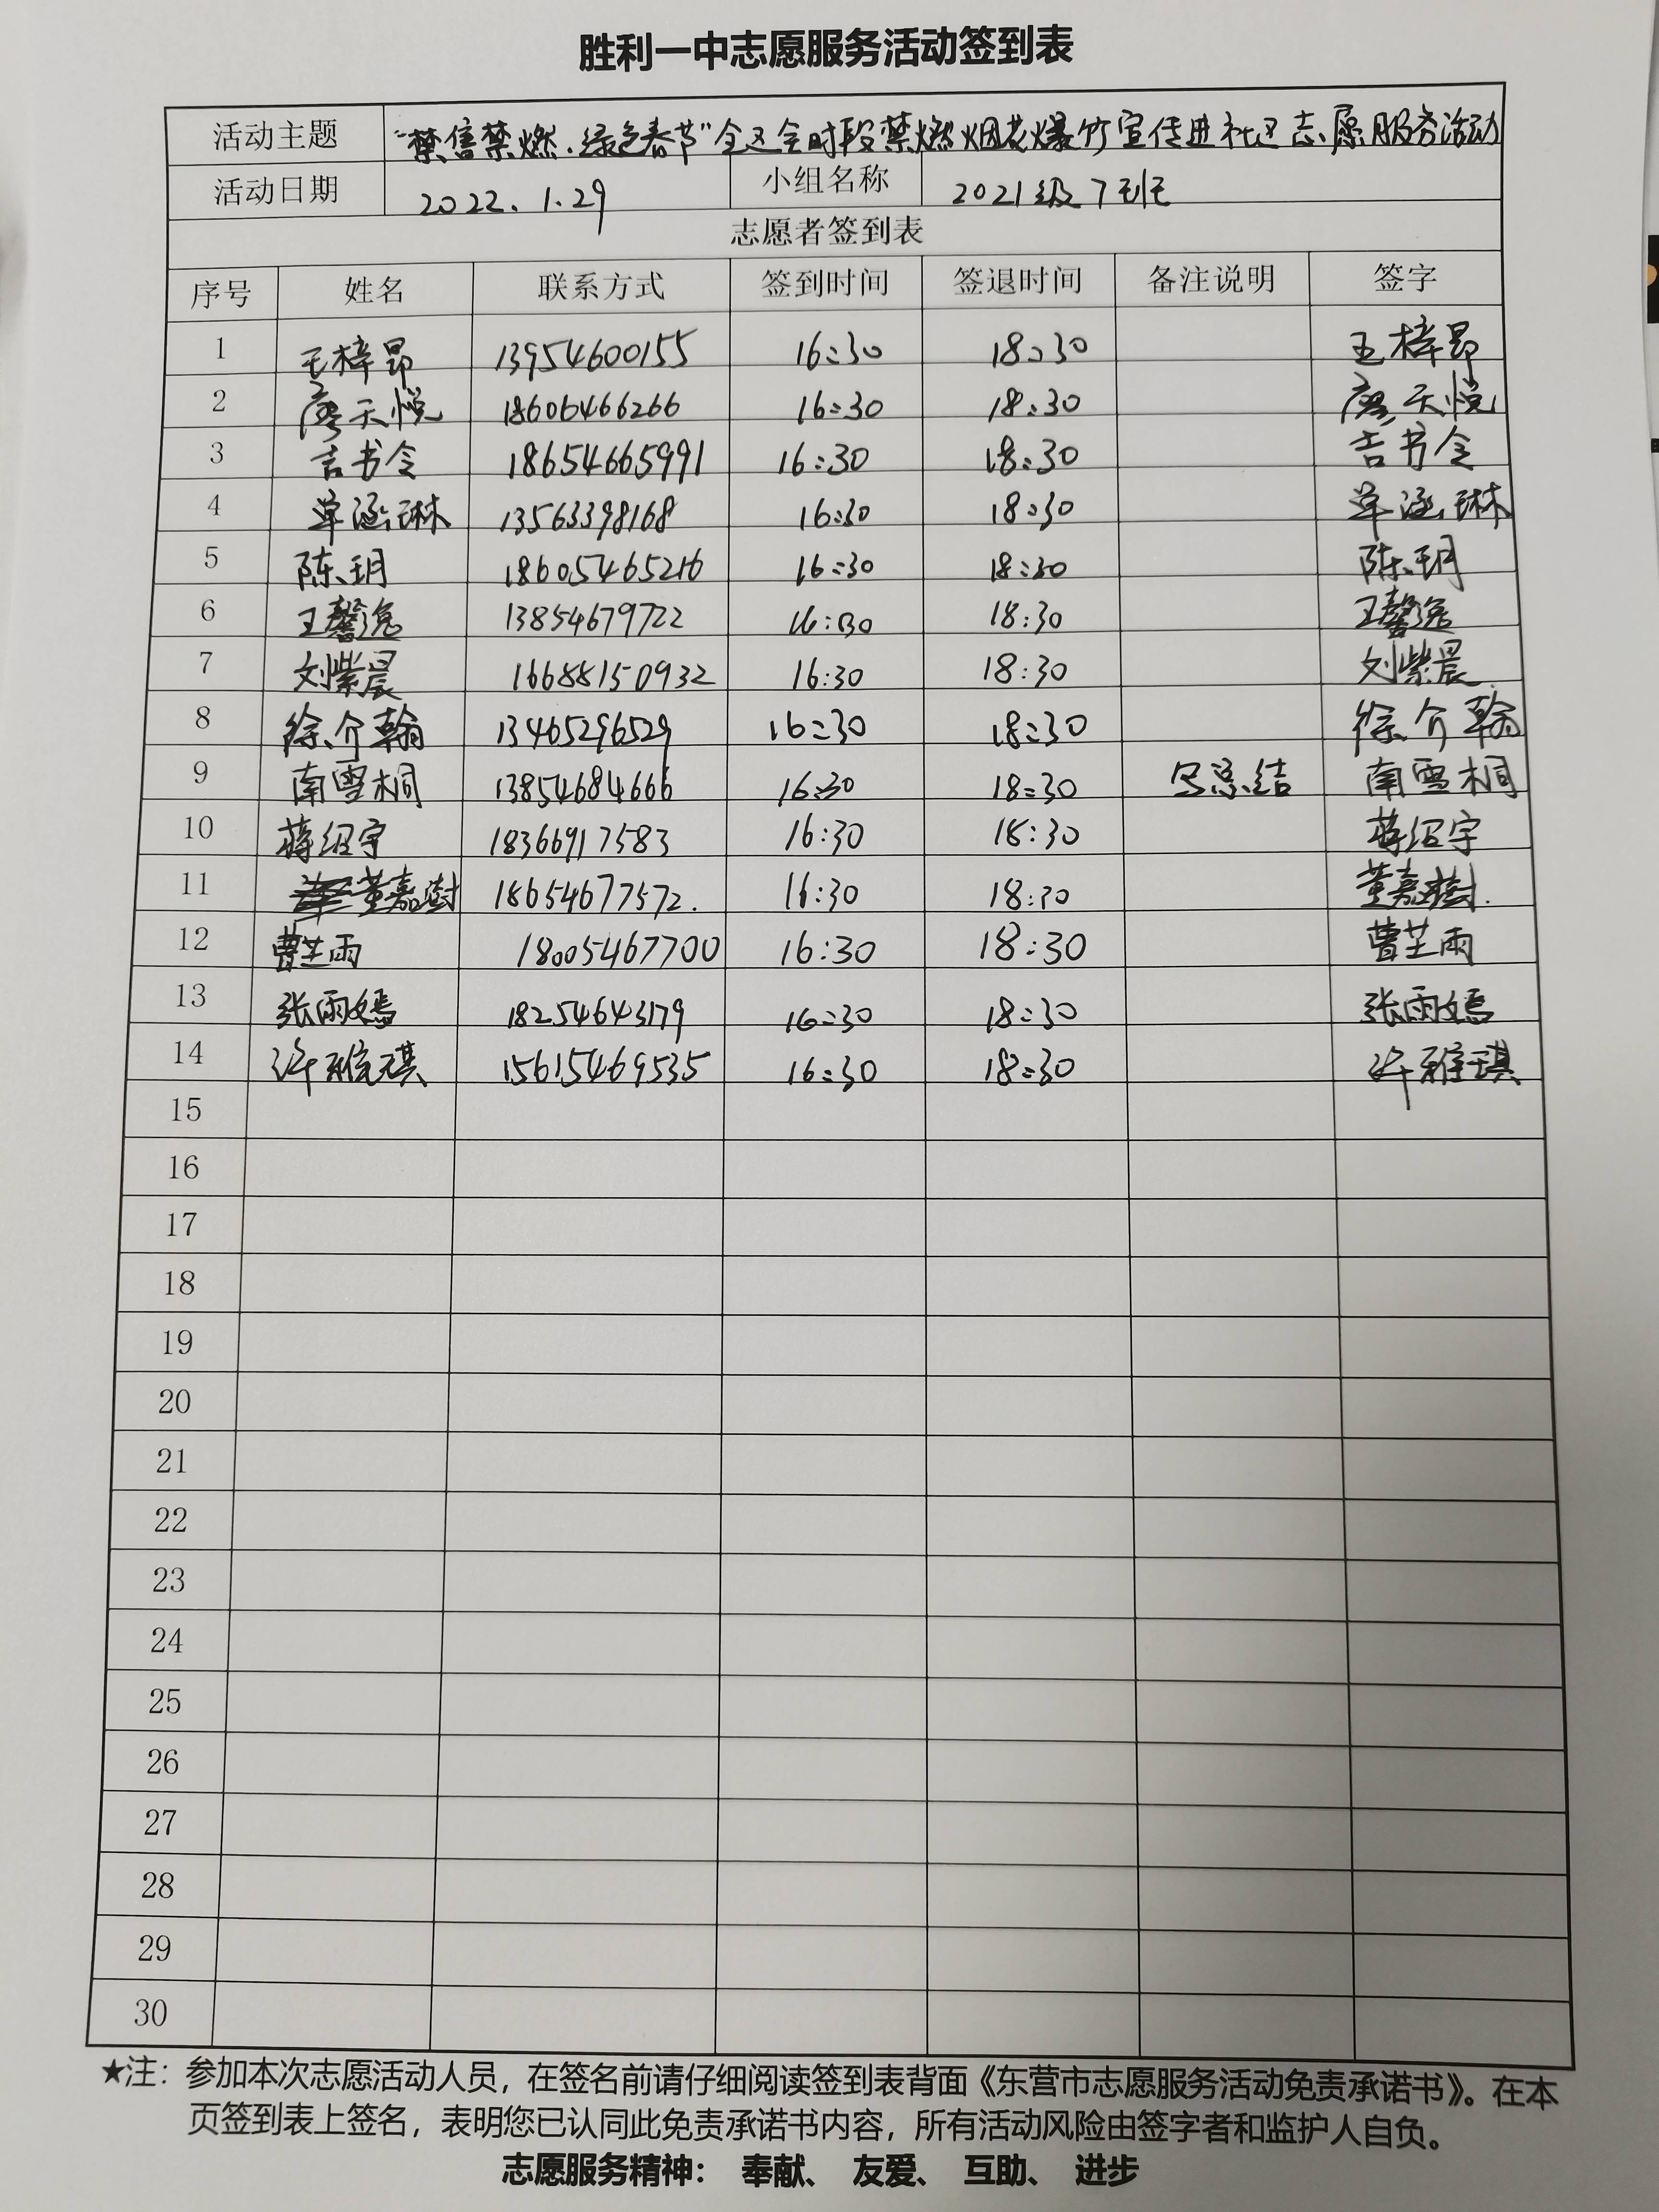 胜利一中志愿服务活动签到表
活动主题 “禁售禁燃·绿色春节”全区全时段禁燃烟花爆竹宣传进社区志愿服务活动
活动日期 2022.1.29 小组名称 2021级7班
志愿者签到表
序号 姓名 联系方式 签到时间 签退时间 备注说明 签字
1 王梓昂 13954600155 16:30 18:30 王梓昂
2 廖天悦 18606466266 16:30 18:30 廖天悦
3 吉书令 18654665991 16:30 18:30 吉书令
4 单涵琳 13563398168 16:30 18:30 单涵琳
5 陈玥 18605465216 16:30 18:30 陈玥
6 王馨逸 13854679722 16:30 18:30 王馨逸
7 刘紫晨 16688150932 16:30 18:30 刘紫晨
8 徐介翰 13465296529 16:30 18:30 徐介翰
9 南雪桐 13854684666 16:30 18:30 写总结 南雪桐
10 蒋绍宇 18366917583 16:30 18:30 蒋绍宇
11 董嘉澍 18654677572. 16:30 18:30 董嘉澍.
12 曹芷雨 18005467700 16:30 18:30 曹芷雨
13 张雨嫣 18254643179 16:30 18:30 张雨嫣
14 许雅琪 15615469535 16:30 18:30 许雅琪
15
16
17
18
19
20
21
22
23
24
25
26
27
28
29
30
★注：参加本次志愿活动人员，在签名前请仔细阅读签到表背面《东营市志愿服务活动免责承诺书》。在本
页签到表上签名，表明您已认同此免责承诺书内容，所有活动风险由签字者和监护人自负。
志愿服务精神： 奉献、 友爱、 互助、 进步